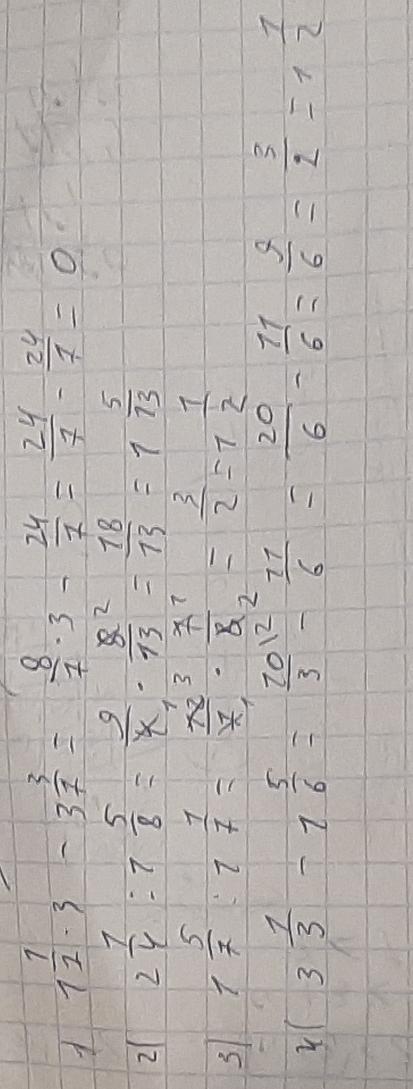 1) 1 1/7 · 3 - 3 3/7 = 8/7 · 3 - 24/7 = 24/7 - 24/7 = 0
2) 2 1/4 : 1 5/8 = 9/4 1 · 8 2/13 = 18/13 = 1 5/13
3) 1 5/7 : 1 1/7 = 12 3/7 1 · 7 1/8 2 = 3/2 = 1 1/2
4) 3 1/3 - 1 5/6 = 20\2/3 - 11/6 = 20/6 - 11/6 = 9/6 = 3/2 = 1 1/2